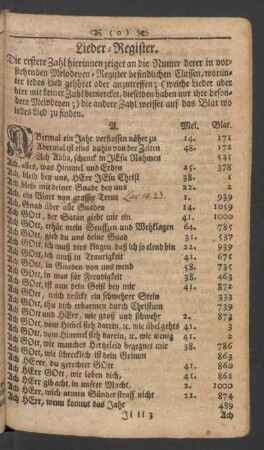 (0)
Lieder-Register.
Die erstere Zahl hierinnen zeiget an die Numer derer in vor-
stehenden Melodeyen-Register befindlichen Classen, worun-
ter iedes Lied gehöret oder anzutreffen; (welche Lieder aber
hier mit keiner Zahl bemercket, dieselben haben nur ihre beson-
dere Melodeyen;) die andere Zahl weiset auf das Blat wo
iedes Lied zu finden.
A. Mel. Blat.
ABermal ein Jahr verflossen näher zu 14. 171
Abermal ist eins dahin von der Zeiten 48. 172
Ach Abba, schenck in JEsu Nahmen 535
Ach, alles, was Himmel und Erden 25. 378
Ach bleib bey uns, HErr JEsu Christ 38. 1
Ach, bleib mit deiner Gnade bey uns 22. 2
Ach, ein Wort von grosser Treu 1. 939
Ach, Gnad über alle Gnaden 14. 1059
Ach GOtt, der Satan giebt mir ein 41. 1000
Ach GOtt, erhör mein Seuftzen und Wehklagen 64. 785
Ach GOtt, gieb du uns deine Gnad 31. 537
Ach GOtt, ich muß dirs klagen, daß ich so elend bin 22. 939
Ach GOtt, ich muß in Traurigkeit 41. 671
Ach GOtt, in Gnaden von uns wend 58. 735
Ach GOtt, in was für Freudigkeit 38. 463
Ach GOtt, ist nun dein Geist bey mir 41. 862
Ach GOtt, mich drückt ein schwehrer Stein 333
Ach GOtt, thu dich erbarmen durch Christum 739
Ach GOtt und HErr, wie groß und schwehr 2. 873
Ach GOtt, vom Himel sieh darein, u. wie übel gehts 41. 3
Ach GOtt, vom Himel sieh darein, u. wie wenig 41. 2
Ach GOtt, wie manches Hertzeleid begegnet mir 38. 786
Ach GOtt, wie schrecklich ist dein Grimm 863
Ach HErr, du gerechter GOtt 41. 860
Ach HErr GOtt, wir loben dich, 41. 861
Ach HErr gib acht, in unser Macht, 2. 1000
Ach HErr, mich armen Sünder straff nicht 22. 874
Ach HErr, wenn kommt das Jahr 489
Ach